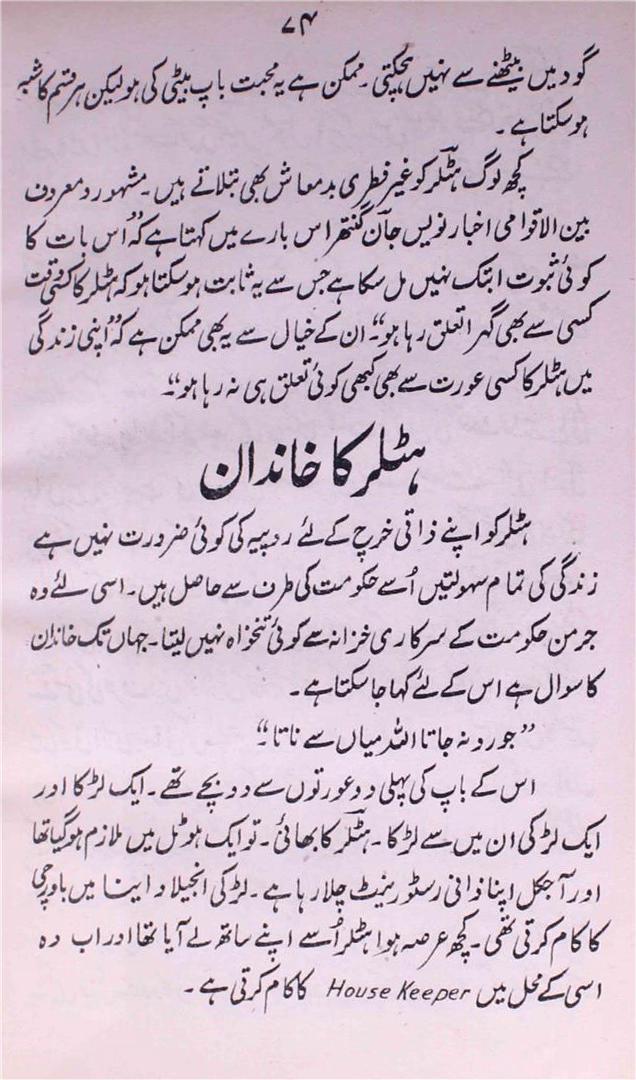 ۷۴
گود میں بیٹھنے سے نہیں ہچکتی۔ ممکن ہے یہ محبت باپ بیٹی کی ہو لیکن ہر قسم کا شبہ
ہو سکتا ہے۔
کچھ لوگ ہٹلر کو غیر فطری بدمعاش بھی بتلاتے ہیں۔ مشہور و معروف
بین الاقوامی اخبار نویس جان گنتھر اس بارے میں کہتا ہے کہ "اس بات کا
کوئی ثبوت ابتک نہیں مل سکا ہے جس سے یہ ثابت ہو سکتا ہو کہ ہٹلر کا کسی وقت
کسی سے بھی گہرا تعلق رہا ہو"۔ ان کے خیال سے یہ بھی ممکن ہے کہ "اپنی زندگی
میں ہٹلر کا کسی عورت سے بھی کبھی کوئی تعلق ہی نہ رہا ہو"۔
ہٹلر کا خاندان
ہٹلر کو اپنے ذاتی خرچ کے لئے روپیہ کی کوئی ضرورت نہیں ہے
زندگی کی تمام سہولتیں اُسے حکومت کی طرف سے حاصل ہیں۔ اسی لئے وہ
جرمن حکومت کے سرکاری خزانہ سے کوئی تنخواہ نہیں لیتا۔ جہاں تک خاندان
کا سوال ہے اس کے لئے کہا جا سکتا ہے۔
"جورو نہ جاتا اللہ میاں سے ناتا"۔
اس کے باپ کی پہلی دو عورتوں سے دو بچے تھے۔ ایک لڑکا اور
ایک لڑکی ان میں سے لڑکا۔ ہٹلر کا بھائی۔ تو ایک ہوٹل میں ملازم ہو گیا تھا
اور آجکل اپنا ذاتی رسٹورینٹ چلا رہا ہے۔ لڑکی انجیلا و اینا میں باورچی
کا کام کرتی تھی۔ کچھ عرصہ ہوا ہٹلر اُسے اپنے ساتھ لے آیا تھا اور اب وہ
اسی کے محل میں House Keeper کا کام کرتی ہے۔